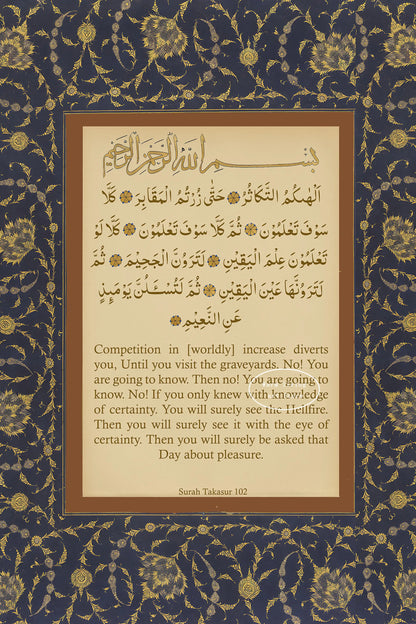 بِسْمِ اللهِ الرَّحْمٰنِ الرَّحِيْمِ
اَلْهٰىكُمُ التَّكَاثُرُ حَتّٰى زُرْتُمُ الْمَقَابِرَ كَلَّا
سَوْفَ تَعْلَمُوْنَ ثُمَّ كَلَّا سَوْفَ تَعْلَمُوْنَ كَلَّا لَوْ
تَعْلَمُوْنَ عِلْمَ الْيَقِيْنِ لَتَرَوُنَّ الْجَحِيْمَ ثُمَّ
لَتَرَوُنَّهَا عَيْنَ الْيَقِيْنِ ثُمَّ لَتُسْـَٔلُنَّ يَوْمَىِٕذٍ
عَنِ النَّعِيْمِ
Competition in [worldly] increase diverts
you, Until you visit the graveyards. No! You
are going to know. Then no! You are going to
know. No! If you only knew with knowledge
of certainty. You will surely see the Hellfire.
Then you will surely see it with the eye of
certainty. Then you will surely be asked that
Day about pleasure.
Surah Takasur 102